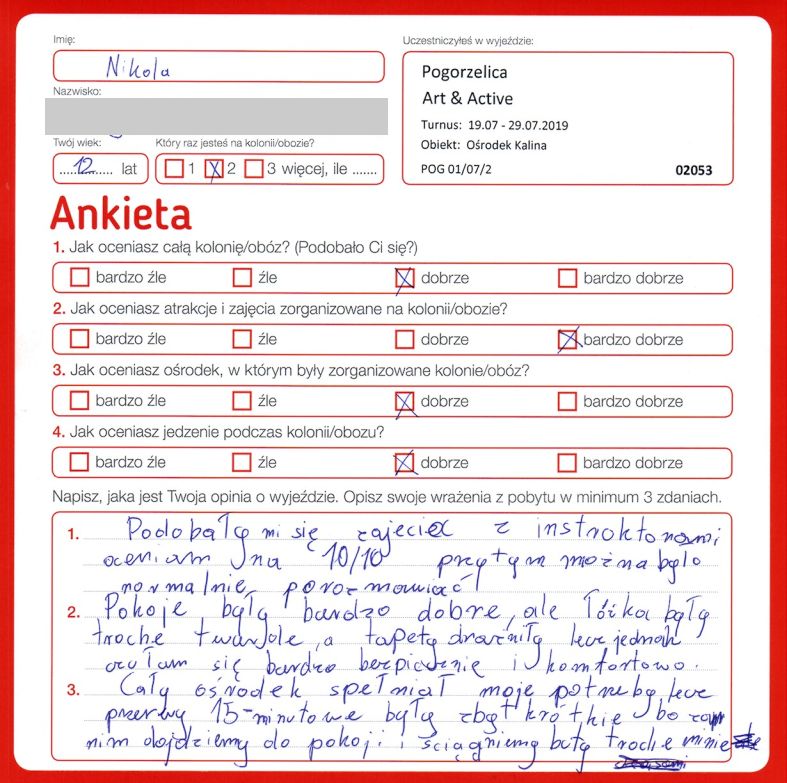 Imię:
Nikola
Nazwisko:
Twój wiek:
12 lat
Który raz jesteś na kolonii/obozie?
1 2 3 więcej, ile .......
Uczestniczyłeś w wyjeździe:
Pogorzelica
Art & Active
Turnus: 19.07 - 29.07.2019
Obiekt: Ośrodek Kalina
POG 01/07/2 02053
Ankieta
1. Jak oceniasz całą kolonię/obóz? (Podobało Ci się?)
bardzo źle źle dobrze bardzo dobrze
2. Jak oceniasz atrakcje i zajęcia zorganizowane na kolonii/obozie?
bardzo źle źle dobrze bardzo dobrze
3. Jak oceniasz ośrodek, w którym były zorganizowane kolonie/obóz?
bardzo źle źle dobrze bardzo dobrze
4. Jak oceniasz jedzenie podczas kolonii/obozu?
bardzo źle źle dobrze bardzo dobrze
Napisz, jaka jest Twoja opinia o wyjeździe. Opisz swoje wrażenia z pobytu w minimum 3 zdaniach.
1. Podobały mi się zajęcia z instroktorami
oceniam na 10/10 przytym można było
normalnie porozmawiać!
2. Pokoje były bardzo dobre, ale łóżka były
troche twarde, a tapety drażniły lecz jednak
czułam się bardzo bezpiecznie i komfortowo.
3. Cały ośrodek spełniał moje potrzeby, lecz
przerwy 15-minutowe były zbyt krótkie bo
nim dojdziemy do pokoji i ściągniemy buty troche minie